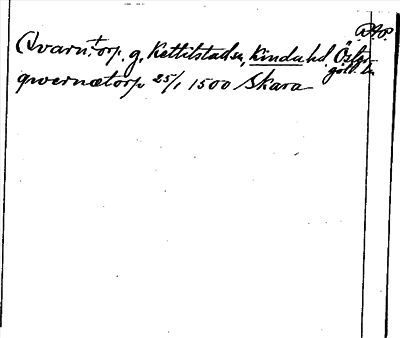 Qvarn.torp. g. Kettilstads sn, Kinda hd. Öster-
götl. l.
qwernætorp 25/1 1500 Skara